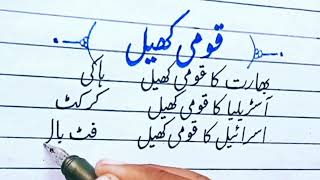 قومی کھیل
بھارت کا قومی کھیل ہاکی
آسٹریلیا کا قومی کھیل کرکٹ
اسرائیل کا قومی کھیل فٹ بال